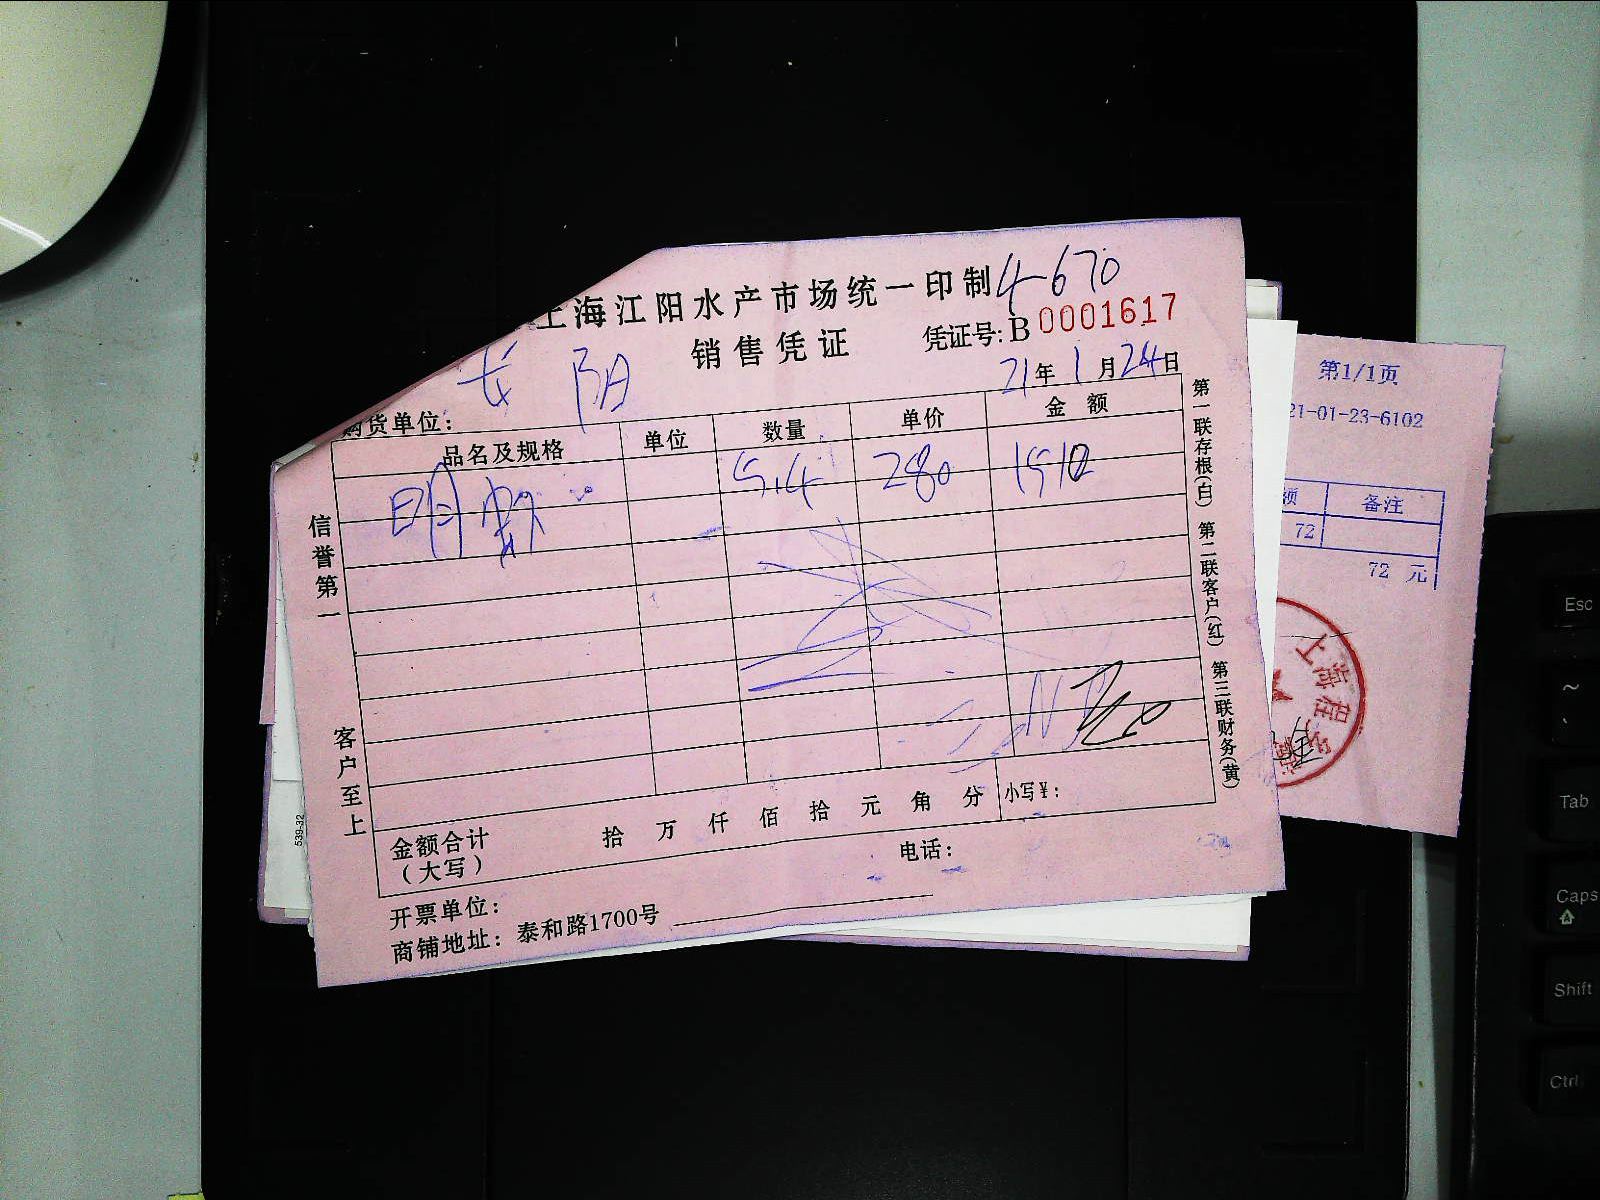 上海江阳水产市场统一印制 4-670
销售凭证 凭证号: B 0001617
21年 1月 24日
购货单位: 长阳
品名及规格 单位 数量 单价 金额
明虾 5.4 280 1510
信誉第一
客户至上
第一联存根(白) 第二联客户(红) 第三联财务(黄)
金额合计 拾 万 仟 佰 拾 元 角 分 小写¥:
(大写)
电话:
开票单位:
商铺地址: 泰和路1700号
第1/1页
21-01-23-6102
额 备注
72
72 元
上海
539-32
Esc
~
Tab
Caps
Shift
Ctrl